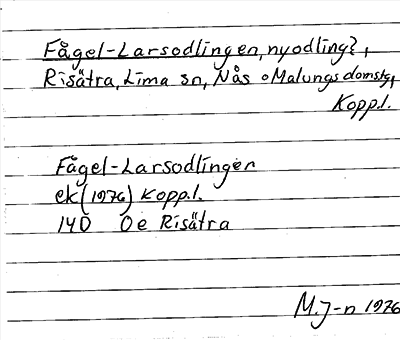 Fågel-Larsodlingen, nyodling?,
Risätra, Lima sn, Nås o Malungs domsg,
Kopp.l.
Fågel-Larsodlingen
ek (1976) Kopp.l.
14D 0e Risätra
M.J-n 1976